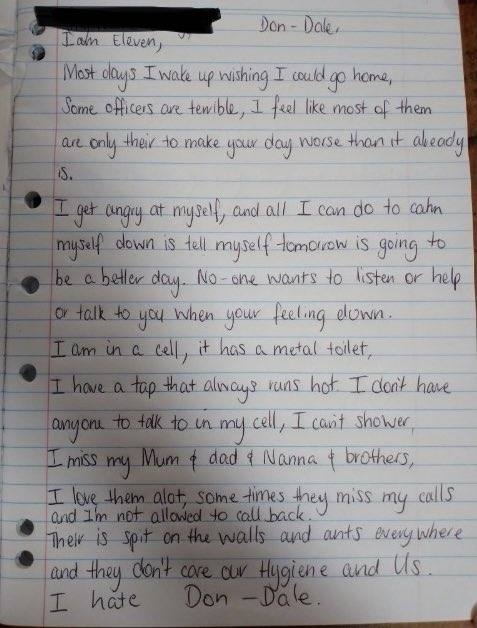 Don-Dale,
I am Eleven,
Most days I wake up wishing I could go home,
Some officers are terrible, I feel like most of them
are only their to make your day worse than it already
is.
I get angry at myself, and all I can do to calm
myself down is tell myself tomorrow is going to
be a better day. No-one wants to listen or help
or talk to you when your feeling down.
I am in a cell, it has a metal toilet,
I have a tap that always runs hot. I don't have
anyone to talk to in my cell, I can't shower,
I miss my Mum & dad & Nanna & brothers,
I love them alot, some times they miss my calls
and I'm not allowed to call back.
Their is spit on the walls and ants everywhere
and they don't care our Hygiene and Us.
I hate Don-Dale.